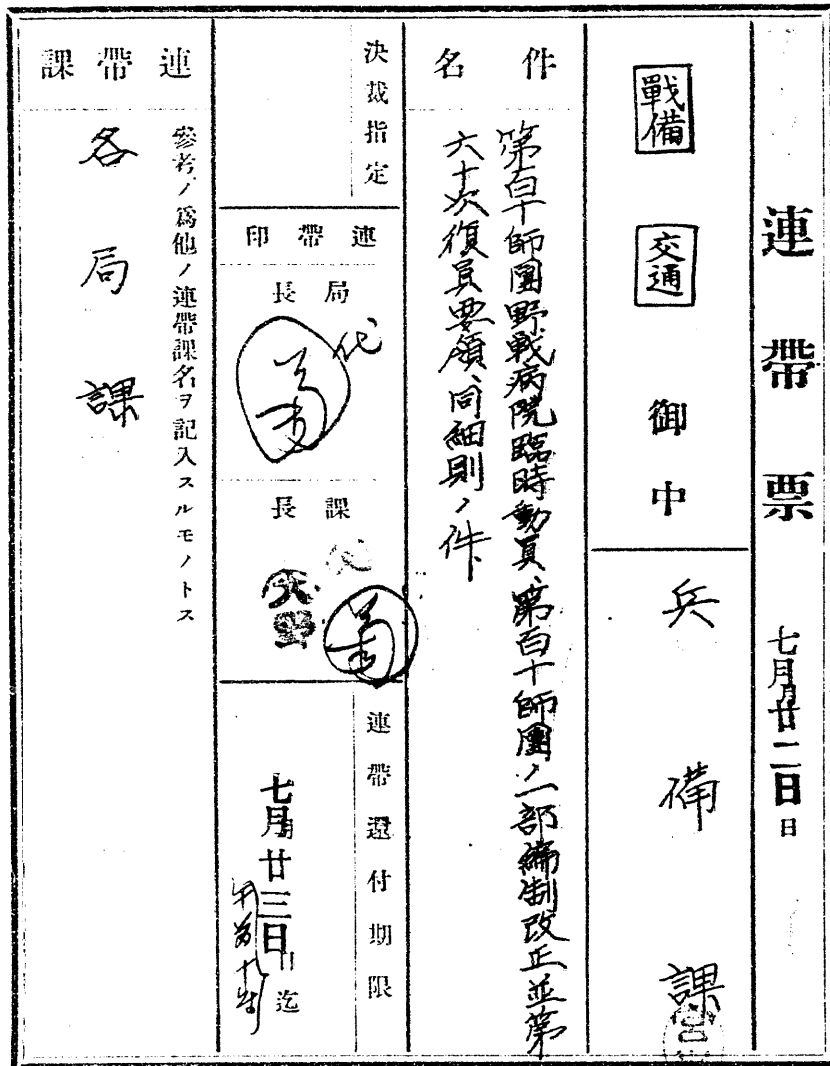 連帶票 七月廿二日
戰備 交通 御中
兵備課
件名
第百十師團野戰病院臨時動員、第百十師團ノ一部編制改正並第
六十次復員要領、同細則ノ件
決裁指定
連帶印
局長
代
課長
代
連帶還付期限
七月廿三日
午前十時迄
連帶課
參考ノ爲他ノ連帶課名ヲ記入スルモノトス
各局課